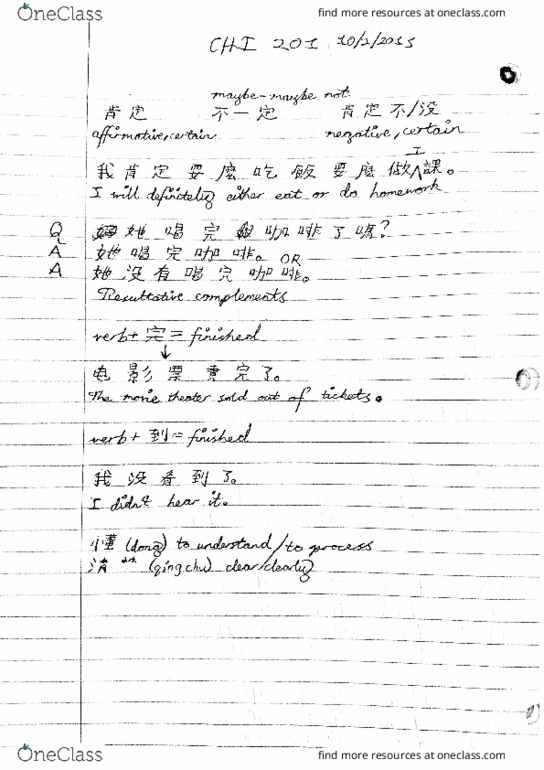 OneClass
find more resources at oneclass.com
CHI 201 10/2/2015
maybe-maybe not
肯定 不一定 肯定不/没
affirmative, certain negative, certain
我肯定要麼吃飯要麼做工課。
I will definitely either eat or do homework
Q 她喝完咖啡了嗎?
A 她喝完咖啡。OR
A 她没有喝完咖啡。
Resultative complements
verb + 完 = finished
电影票卖完了。
The movie theater sold out of tickets.
verb + 到 = finished
我没看到了。
I didn't hear it.
懂 (dong) to understand/to process
清楚 (qingchu) clear/clearly
OneClass
find more resources at oneclass.com